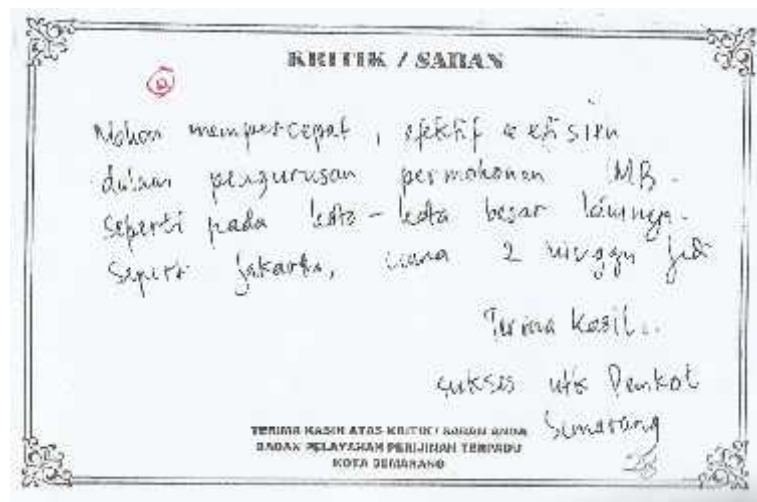 KRITIK / SARAN
Mohon mempercepat, efektif & efisien
dalam pengurusan permohonan IMB.
seperti pada kota-kota besar lainnya.
Seperti Jakarta, 2 minggu jadi
Terima kasih..
sukses utk Pemkot
Semarang
TERIMA KASIH ATAS KRITIK / SARAN ANDA
BADAN PELAYANAN PERIJINAN TERPADU
KOTA SEMARANG